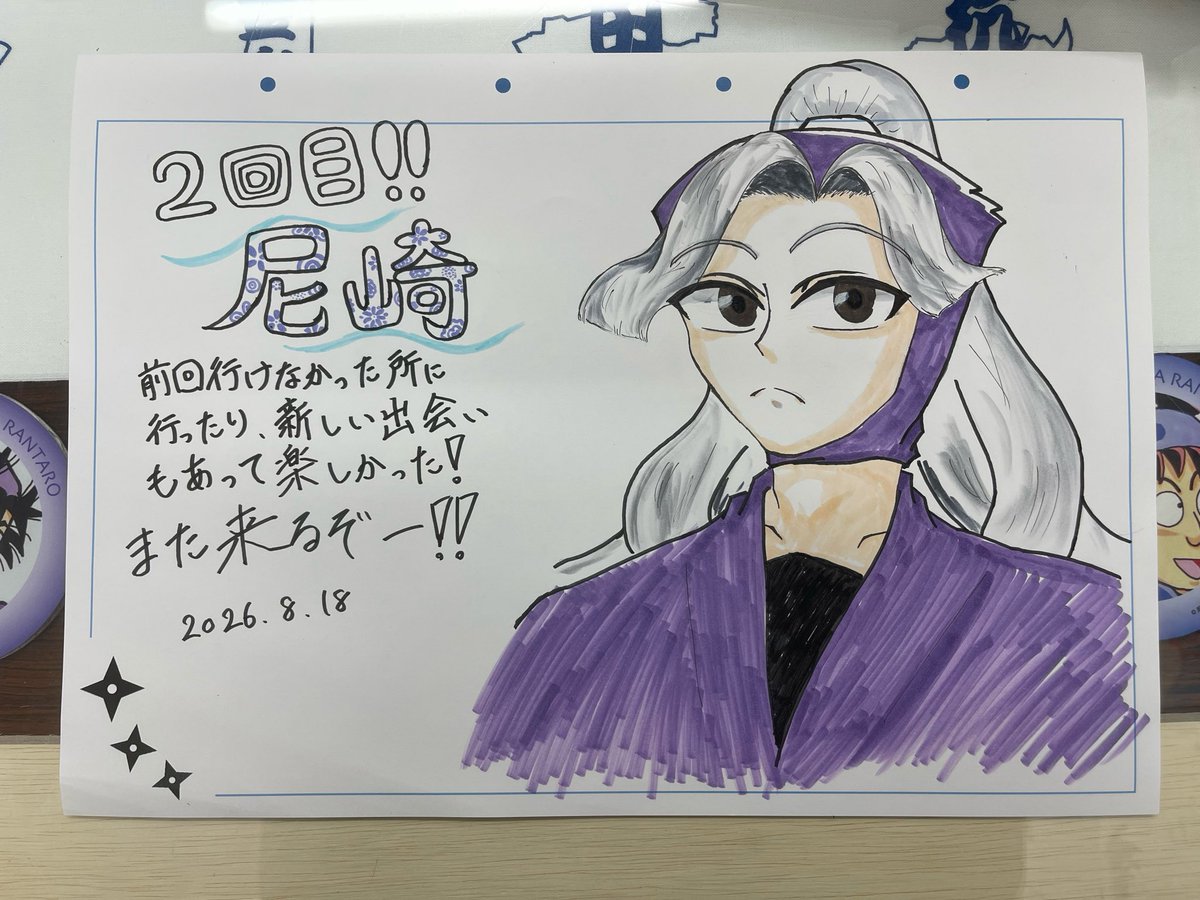 2回目!!
尼崎
前回行けなかった所に
行ったり、新しい出会い
もあって楽しかった!
また来るぞー!!
2026.8.18
RANTARO
A RANTA